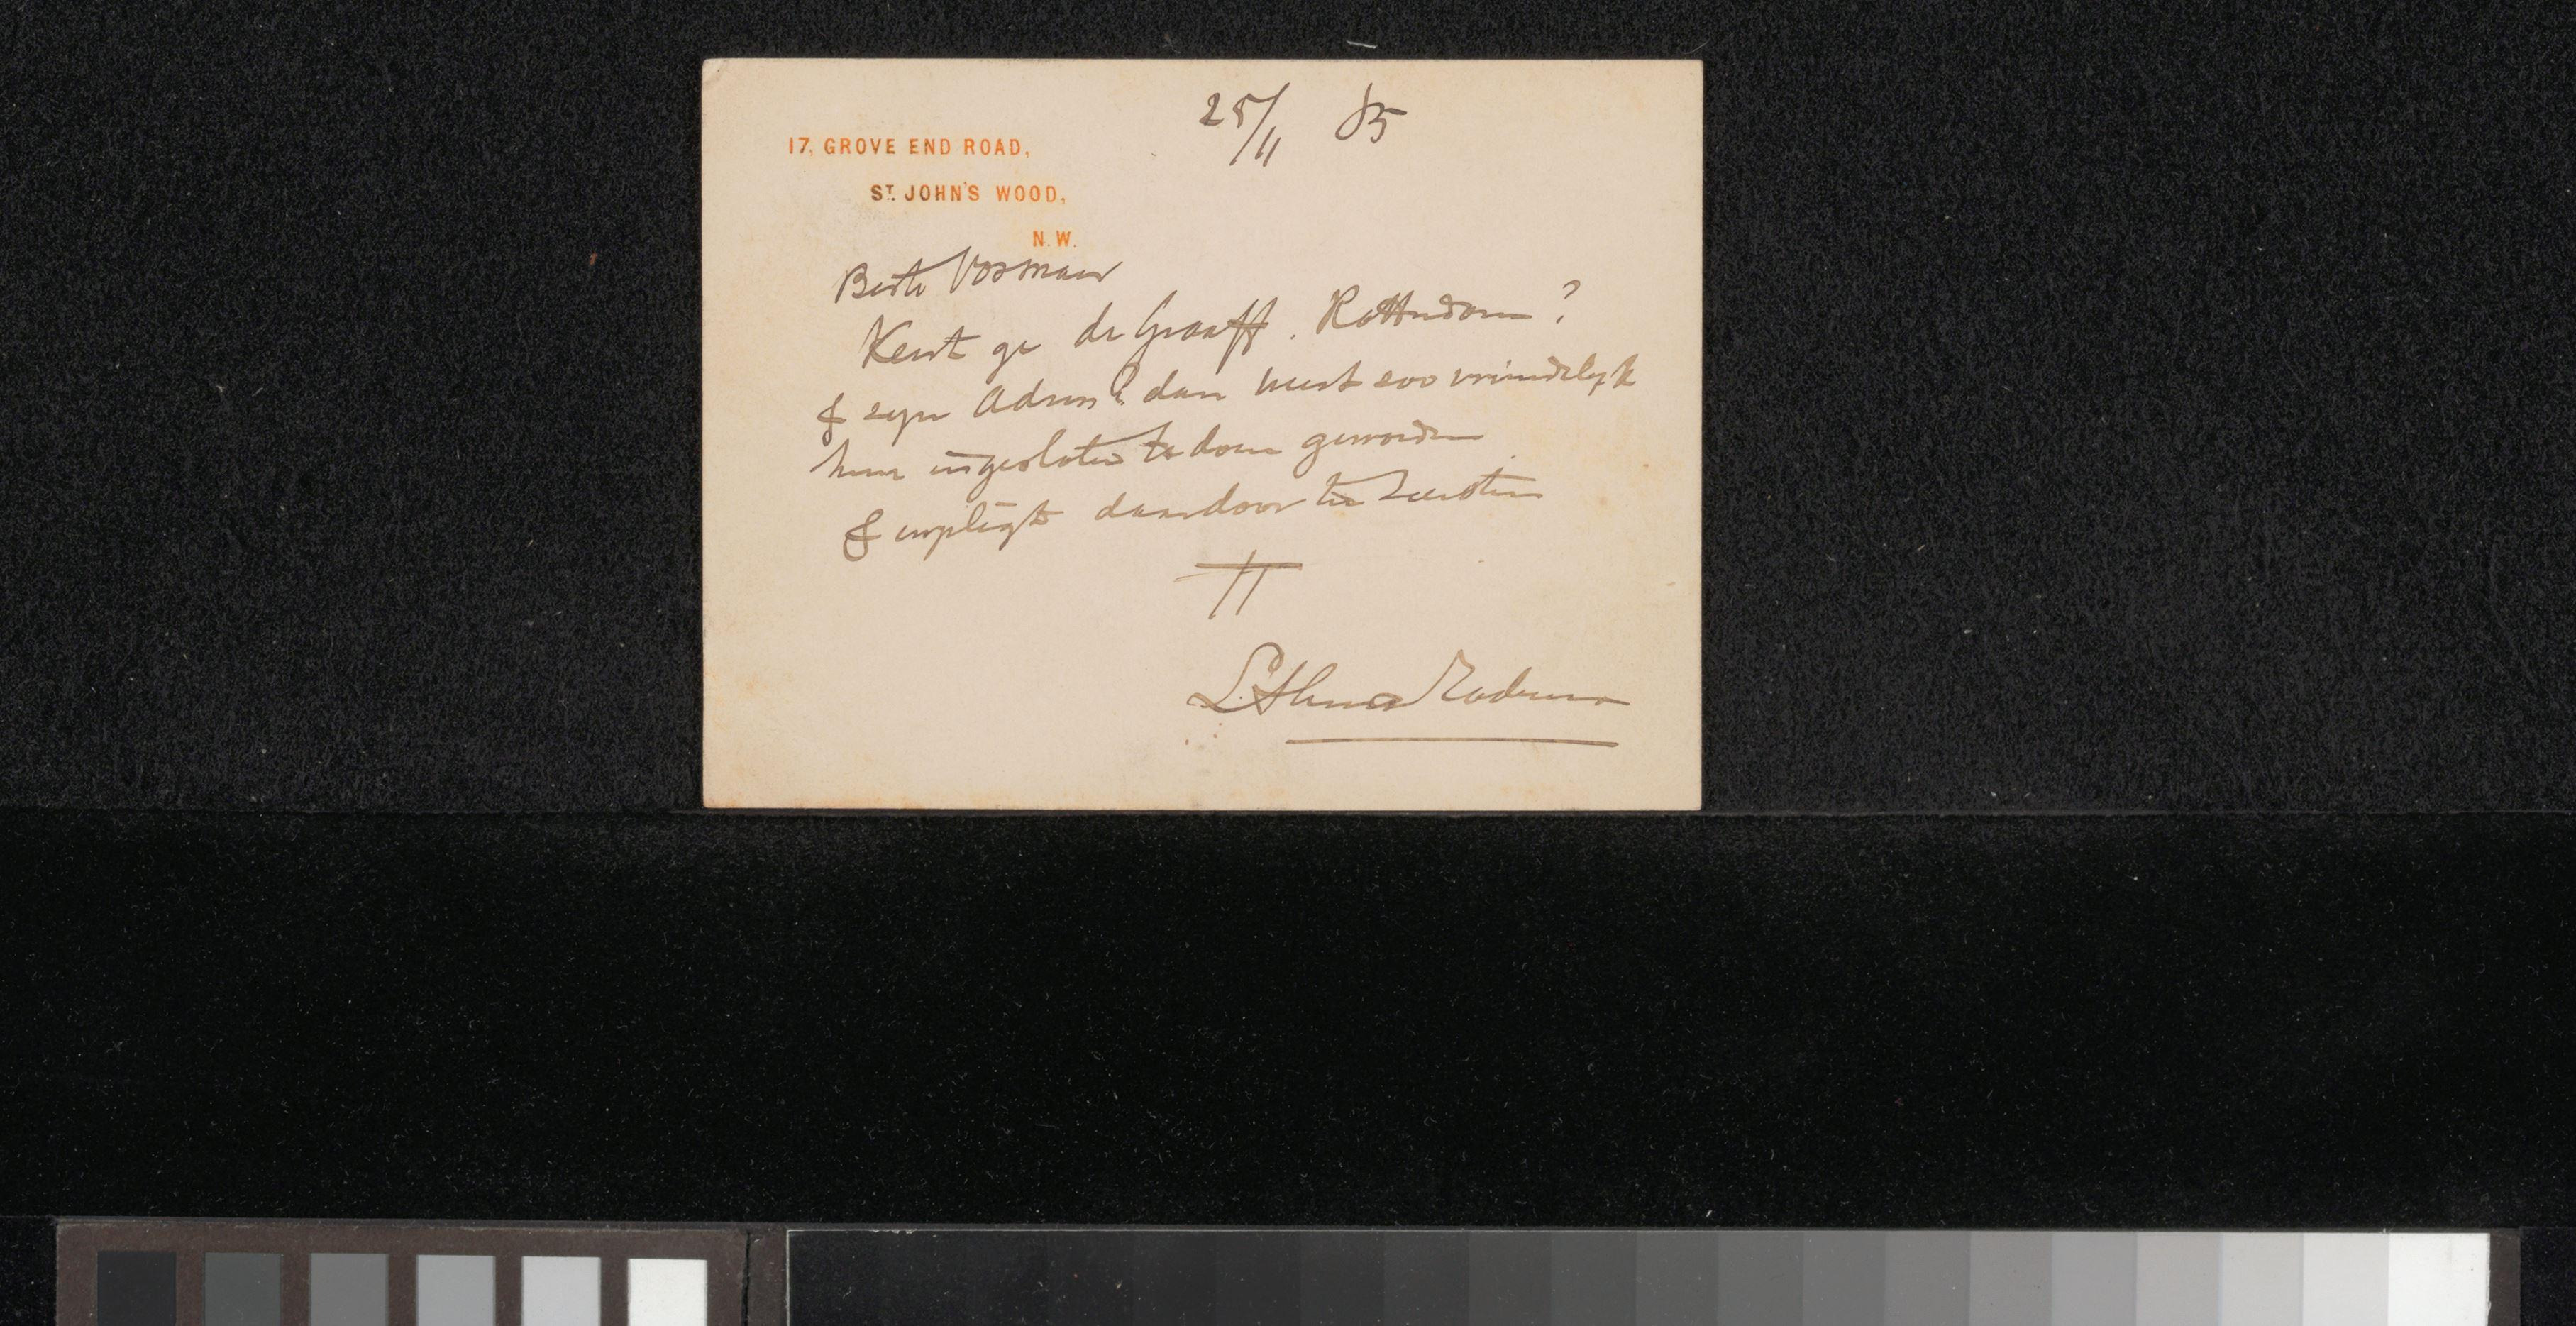 25/11 85
17, GROVE END ROAD,
ST. JOHN'S WOOD,
N.W.
Beste Vosmaer
Kent ge de Graaff. Rotterdam?
& zyn Adres? dan weest zoo vriendelyk
hem ingesloten te doen geworden
& verpligt daardoor ten zeersten
LAlma Tadema